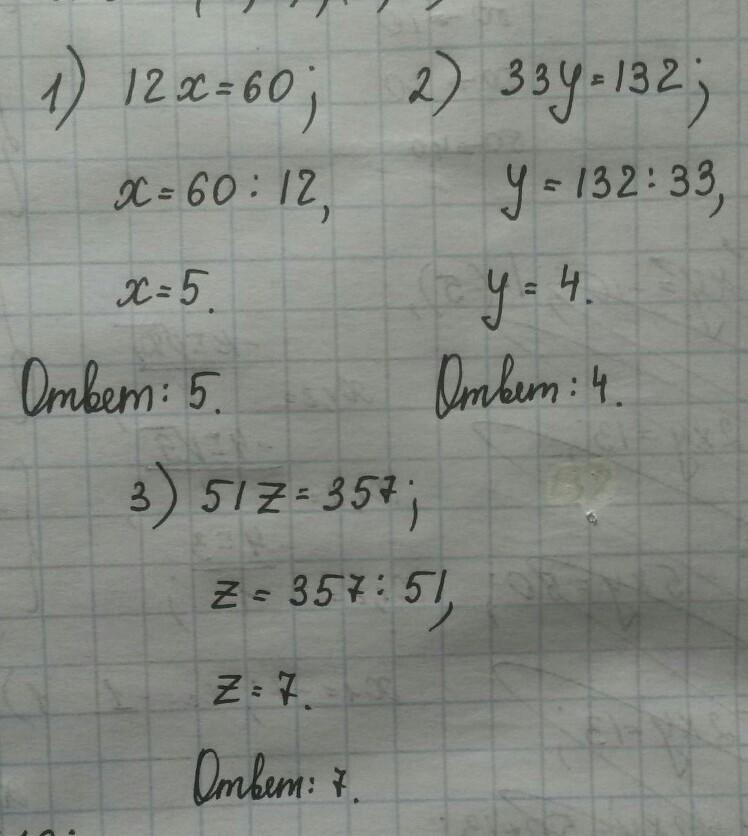 1) 12x=60;
x=60:12,
x=5.
Ответ: 5.
2) 33y=132;
y=132:33,
y=4.
Ответ: 4.
3) 51z=357;
z=357:51,
z=7.
Ответ: 7.